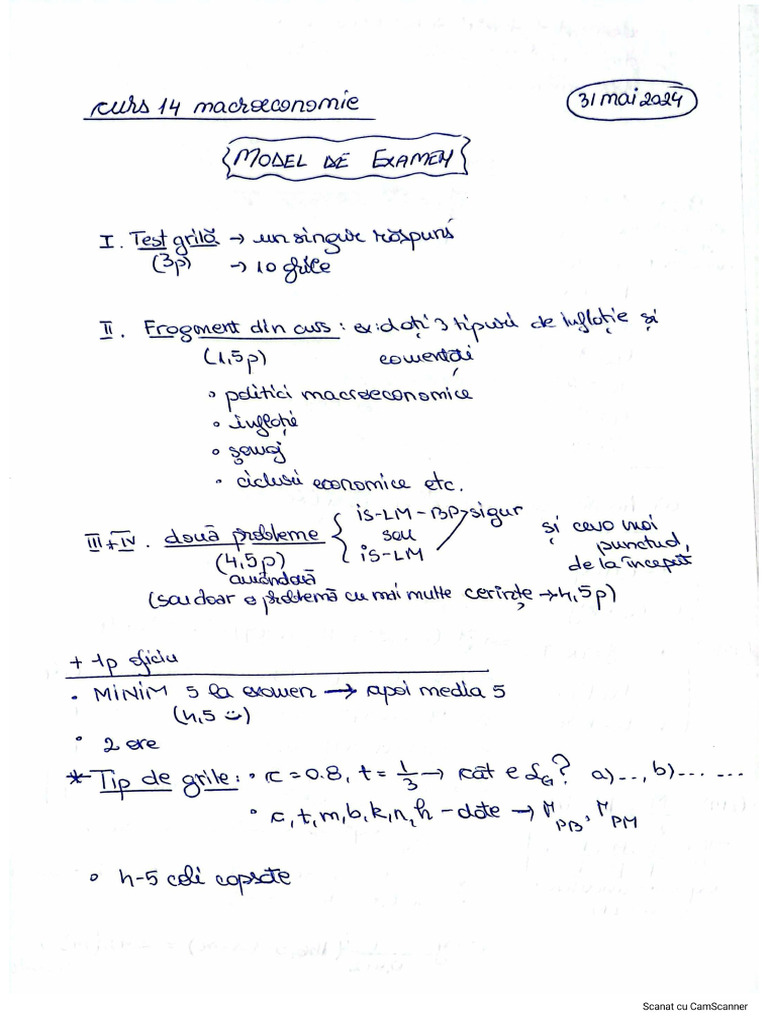 curs 14 macroeconomie
31 mai 2024
MODEL DE EXAMEN
I. Test grilă → un singur răspuns
(3p) → 10 grile
II. Fragment din curs: ex: dați 3 tipuri de inflație și
(1,5p) comentați
• politici macroeconomice
• inflație
• șomaj
• cicluri economice etc.
III + IV. două probleme { IS-LM-BP → sigur
sau
IS-LM
și ceva mai
punctual,
de la început
(4,5p)
amândouă
(sau doar o problemă cu mai multe cerințe → 4,5p)
+ 1p oficiu
• MINIM 5 la examen → apoi media 5
(4,5 ☺)
• 2 ore
* Tip de grile: • c = 0.8, t = 1/3 → cât e αG? a)..., b)... ...
• c, t, m, b, k, n, h - date → MPB, MPM
• 4-5 coli capsate
Scanat cu CamScanner